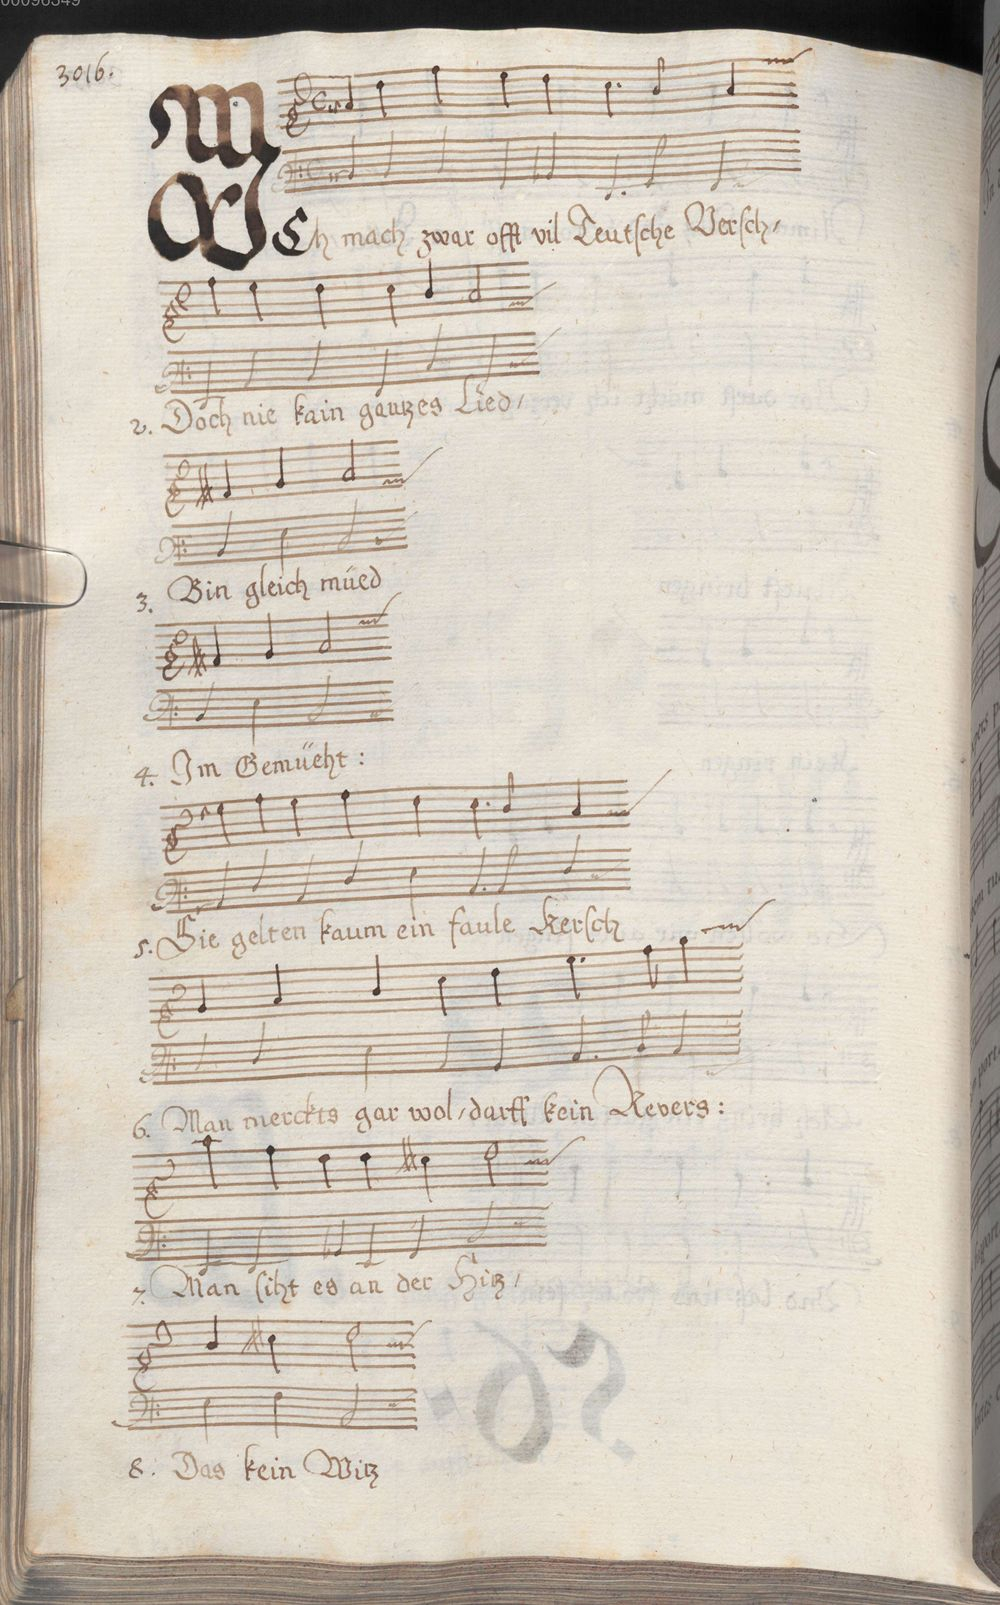 00096549
3016.
Ich mach zwar offt vil Teutsche Versch,
2. Doch nie kain gantzes Lied,
3. Bin gleich müed
4. Im Gemüeht:
5. Sie gelten kaum ein faule Kersch
6. Man merckts gar wol, darff kein Revers:
7. Man siht es an der Hitz,
8. Das kein Witz